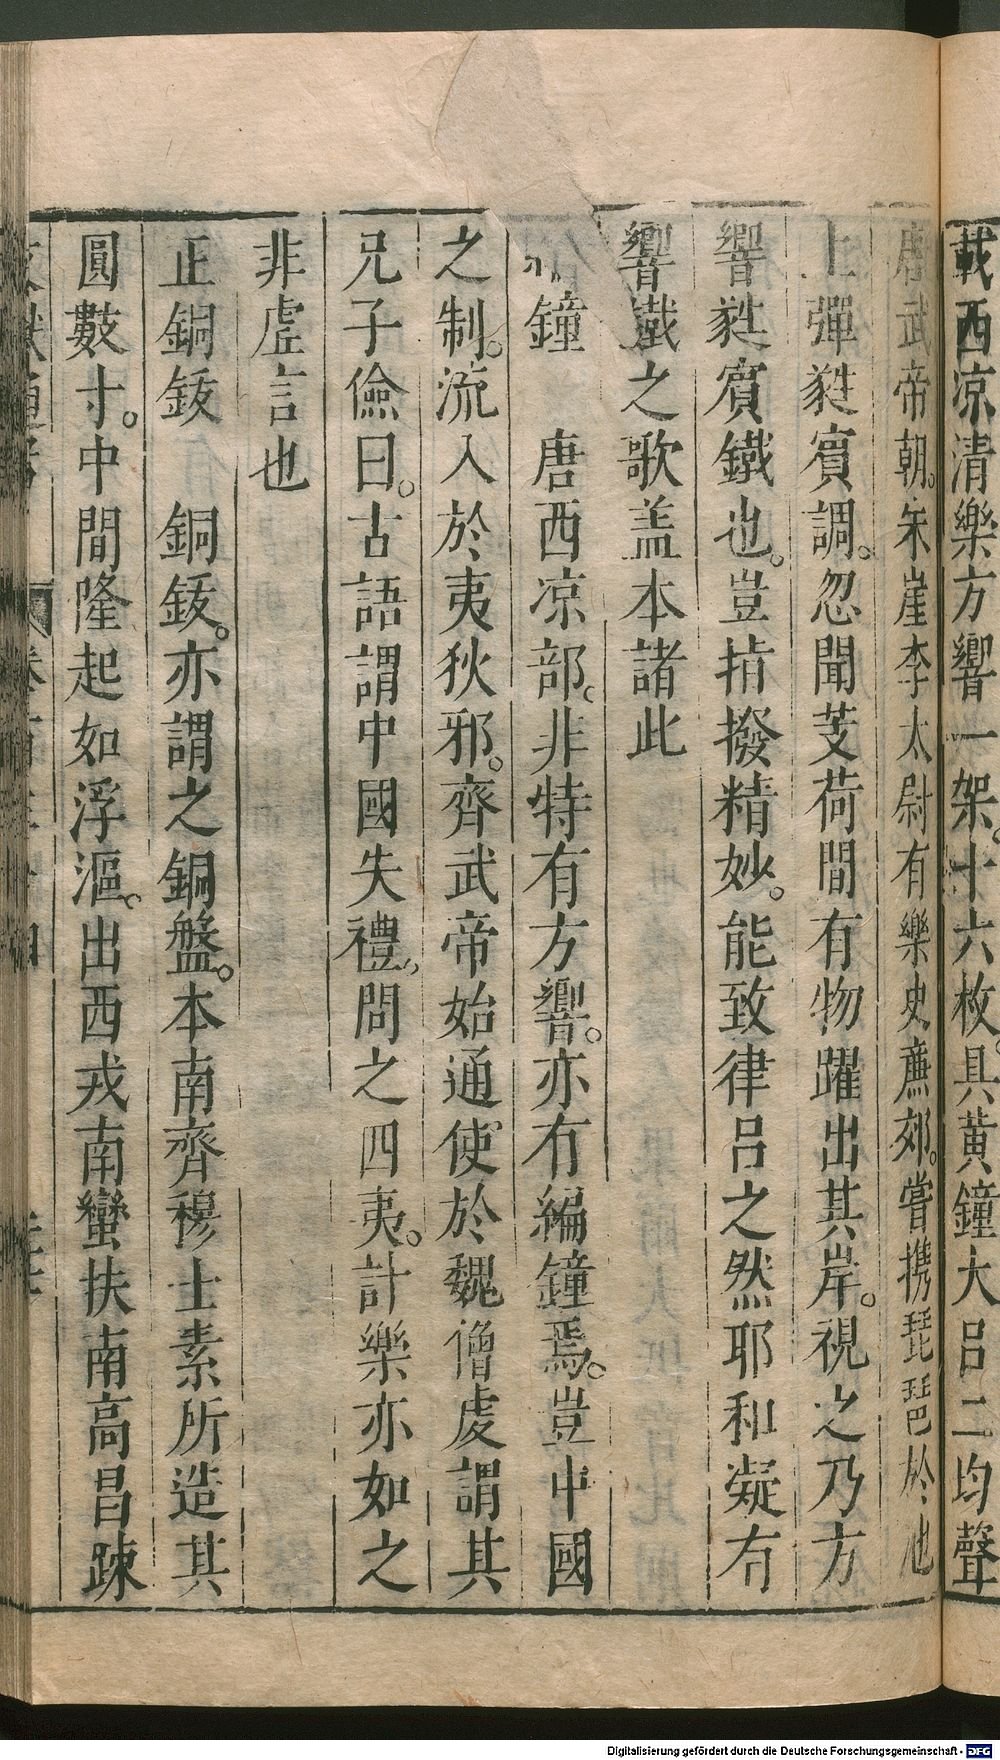 載西凉清樂方響一架。十六枚。具黃鐘大呂二均聲
唐武帝朝。朱崖李太尉有樂史廉郊。嘗携琵琶於池
上彈蕤賓調。忽聞芰荷間有物躍出其岸。視之乃方
響蕤賓鐵也。豈指撥精妙。能致律呂之然耶和凝有
響鐵之歌盖本諸此
鐘　唐西凉部。非特有方響。亦有編鐘焉。豈中國
之制。流入於夷狄邪。齊武帝始通使於魏僧虔謂其
兄子儉曰。古語謂中國失禮。問之四夷。計樂亦如之
非虛言也
正銅鈸　銅鈸。亦謂之銅盤。本南齊穆士素所造其
圓數寸。中間隆起如浮漚。出西戎南蠻扶南高昌踈
Digitalisierung gefördert durch die Deutsche Forschungsgemeinschaft - DFG